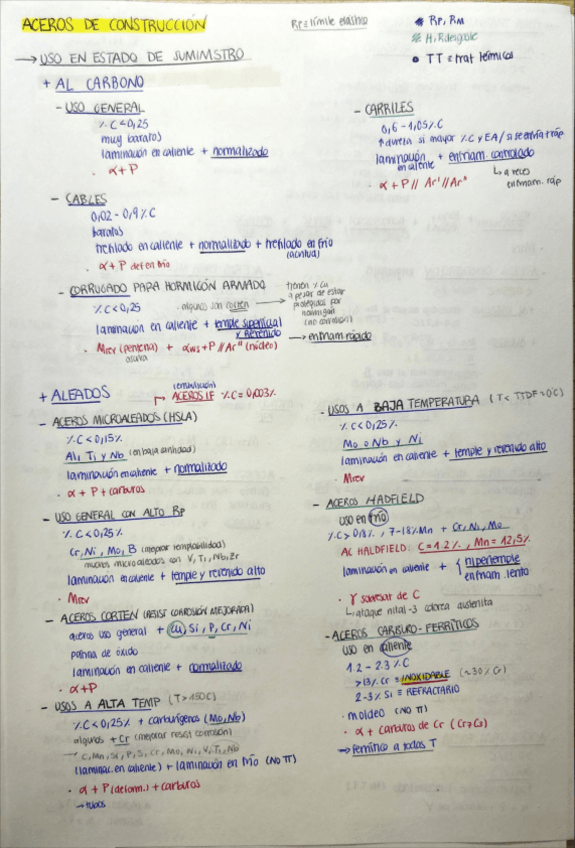 ACEROS DE CONSTRUCCIÓN
Rp = límite elástico
* Rp, Rm
* H, Rdesgaste
• TT = trat térmicos
→ USO EN ESTADO DE SUMIMSTRO
+ AL CARBONO
- USO GENERAL
% C < 0,25
muy baratos
laminación en caliente + normalizado
• α + P
- CABLES
0,02 - 0,9 % C
baratos
trefilado en caliente + normalizado + trefilado en frío
(acritud)
• α + P def en frío
- CORRUGADO PARA HORMIGÓN ARMADO
% C < 0,25
- algunos son corten
tienen % Cu
a pesar de estar
protegidos por
hormigón
(no corrosión)
laminación en caliente + temple superficial
y revenido
→ enfriam. rápido
• Mrev (periferia) + αws + P // Ar'' (núcleo)
oscura
- CARRILES
0,6 - 1,05 % C
↑ dureza si mayor % C y EA / si se enfría ráp
laminación en caliente + enfriam. controlado
↳ a veces
enfriam. ráp
• α + P // Ar' // Ar''
+ ALEADOS
ACEROS IF % C = 0,003 %
- ACEROS MICROALEADOS (HSLA)
% C < 0,15 %
Al, Ti y Nb (en baja cantidad)
laminación en caliente + normalizado
• α + P + carburos
- USO GENERAL CON ALTO Rp
% C < 0,25 %
Cr, Ni, Mo, B (mejorar templabilidad)
muchos microaleados con V, Ti, Nb, Zr
laminación en caliente + temple y revenido alto
• Mrev
- ACEROS CORTEN (RESIST CORROSIÓN MEJORADA)
aceros uso general + Cu, Si, P, Cr, Ni
patina de óxido
laminación en caliente + normalizado
• α + P
- USOS A ALTA TEMP (T > 150C)
% C < 0,25 % + carburígenos (Mo, Nb)
algunos + Cr (mejorar resist corrosión)
C, Mn, Si, P, S, Cr, Mo, Ni, V, Ti, Nb
(laminac. en caliente) + laminación en frío (NO TT)
• α + P (deform.) + carburos
→ tubos
- USOS A BAJA TEMPERATURA (T < TTDF = 0°C)
% C < 0,25 %
Mo o Nb y Ni
laminación en caliente + temple y revenido alto
• Mrev
- ACEROS HADFIELD
uso en frío
% C > 0,8 %, 7-18 % Mn + Cr, Ni, Mo
AC HALDFIELD: C = 1.2 %, Mn = 12,5 %
laminación en caliente + { hipertemple
enfriam. lento
• γ sobresat de C
↳ ataque nital-3 colorea austenita
- ACEROS CARBURO-FERRÍTICOS
uso en caliente
1.2 - 2.3 % C
> 13 % Cr = INOXIDABLE (~30 % Cr)
2-3 % Si = REFRACTARIO
• moldeo (NO TT)
• α + carburos de Cr (Cr7C3)
→ ferrítico a todas T